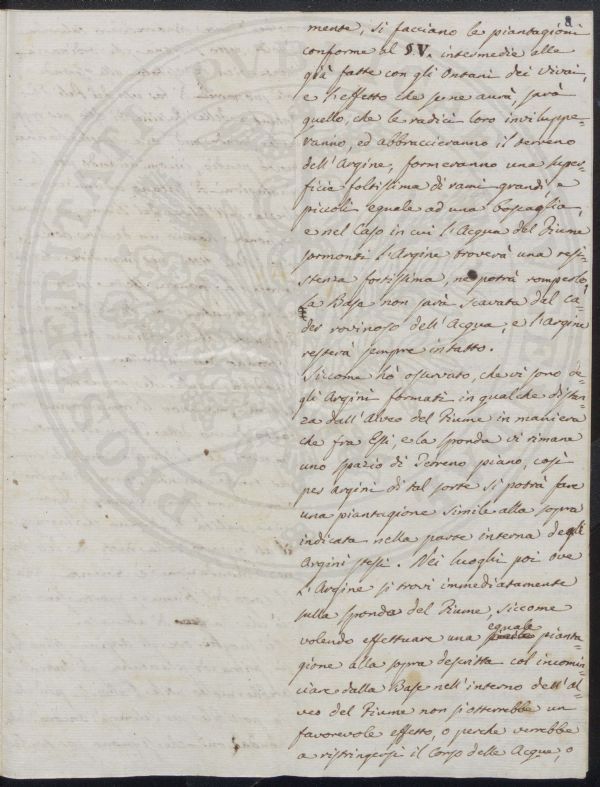 8
mente, si facciano le piantagioni
conforme al §V. intermedie alle
già fatte con gli Ontani dei Vivai,
e l'effetto che se ne aurà, sarà
quello, che le radici loro inviluppe-
ranno, ed abbraccieranno il terreno
dell'Argine, formeranno una super-
ficie foltissima di rami grandi, e
piccoli eguale ad una boscaglia,
e nel Caso in cui l'Acqua del Fiume
sormonti l'Argine troverà una resi-
stenza fortissima, ne potrà romperlo,
la Base non sarà scavata dal ca-
der rovinoso dell'Acqua, e l'Argine
resterà sempre intatto.
Siccome hò osservato, che vi sono de-
gli Argini formati in qualche distan-
za dall'Alveo del Fiume in maniera
che fra Essi, e la sponda vi rimane
uno spazio di Terreno piano, così
per argini di tal sorte si potrà fare
una piantagione simile alla sopra
indicata nella parte interna degli
Argini stessi. Nei luoghi poi ove
l'Argine si trovi immediatamente
sulla sponda del Fiume, siccome
volendo effettuare una eguale pianta-
gione alla sopra descritta col incomin-
ciare dalla Base nell'interno dell'Al-
veo del Fiume non si otterrebbe un
favorevole effetto, o perche verrebbe
a ristringersi il Corso delle Acque, o